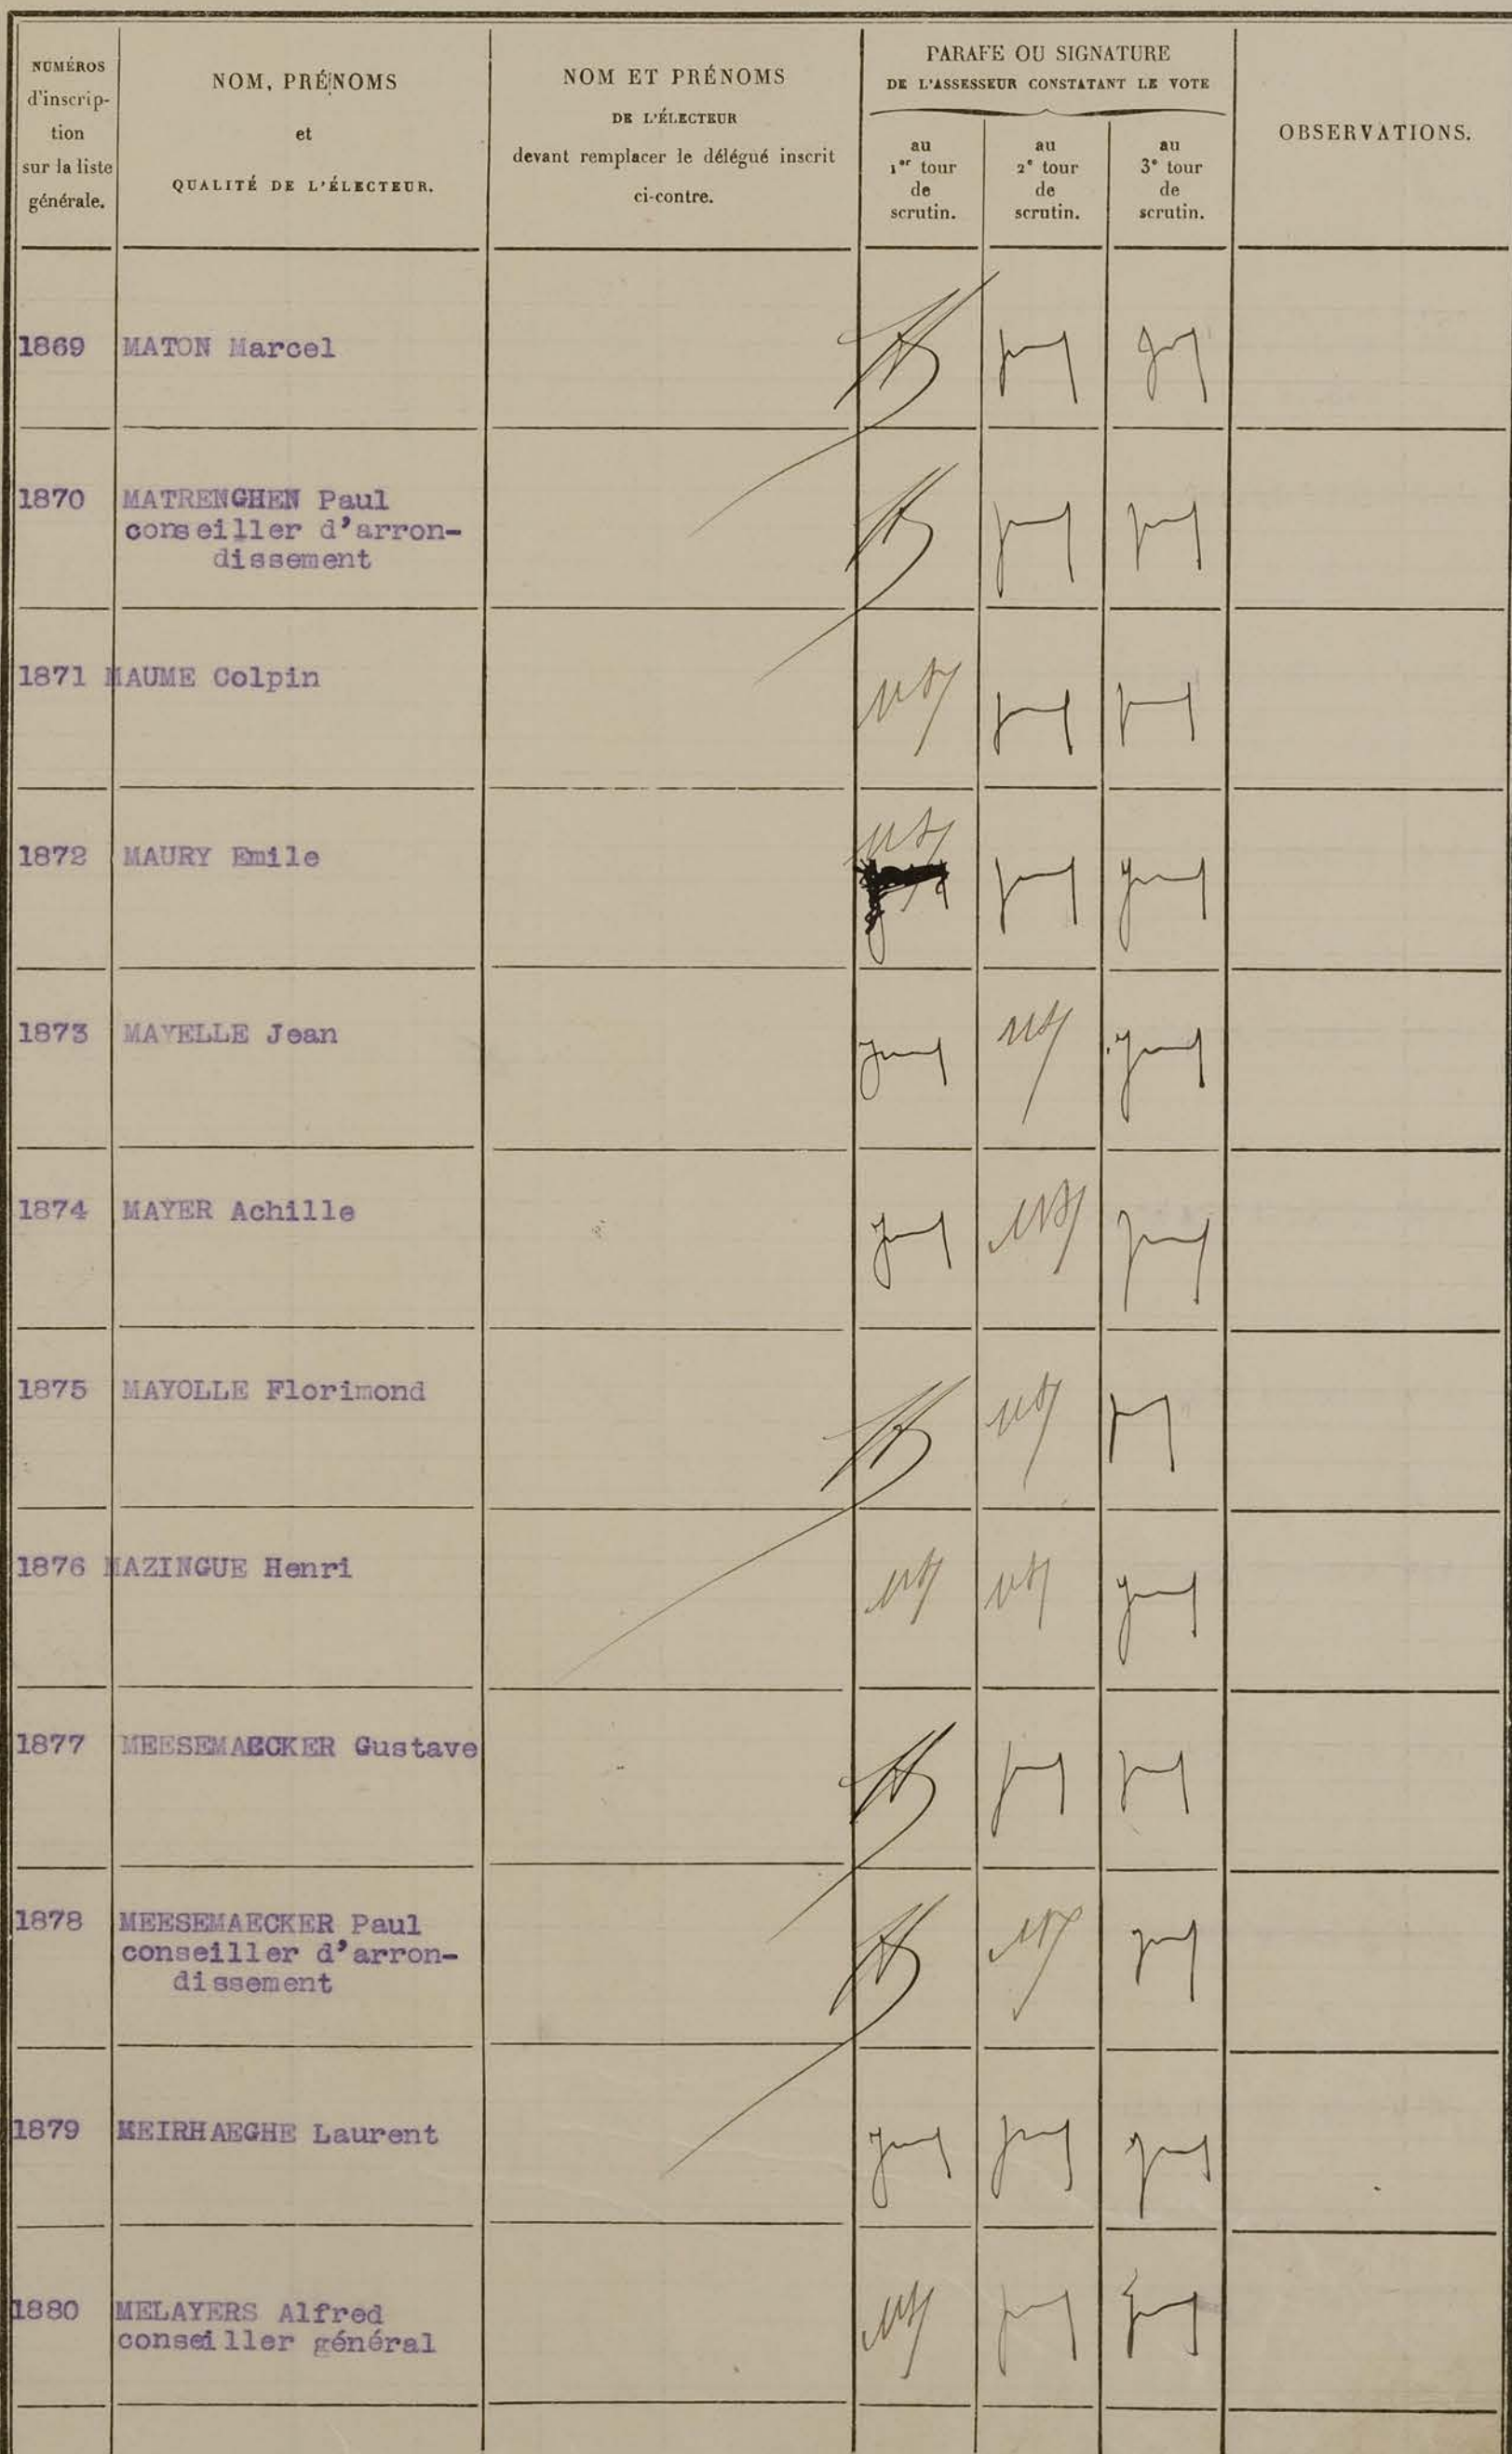 NUMÉROS
d'inscrip-
tion
sur la liste
générale.
NOM, PRÉNOMS
et
QUALITÉ DE L'ÉLECTEUR.
NOM ET PRÉNOMS
DE L'ÉLECTEUR
devant remplacer le délégué inscrit
ci-contre.
PARAFE OU SIGNATURE
DE L'ASSESSEUR CONSTATANT LE VOTE
au
1er tour
de
scrutin.
au
2e tour
de
scrutin.
au
3e tour
de
scrutin.
OBSERVATIONS.
1869 MATON Marcel
1870 MATRENGHEN Paul
conseiller d'arron-
dissement
1871 MAUME Colpin
1872 MAURY Emile
1873 MAYELLE Jean
1874 MAYER Achille
1875 MAYOLLE Florimond
1876 MAZINGUE Henri
1877 MEESEMAECKER Gustave
1878 MEESEMAECKER Paul
conseiller d'arron-
dissement
1879 MEIRHAEGHE Laurent
1880 MELAYERS Alfred
conseiller général